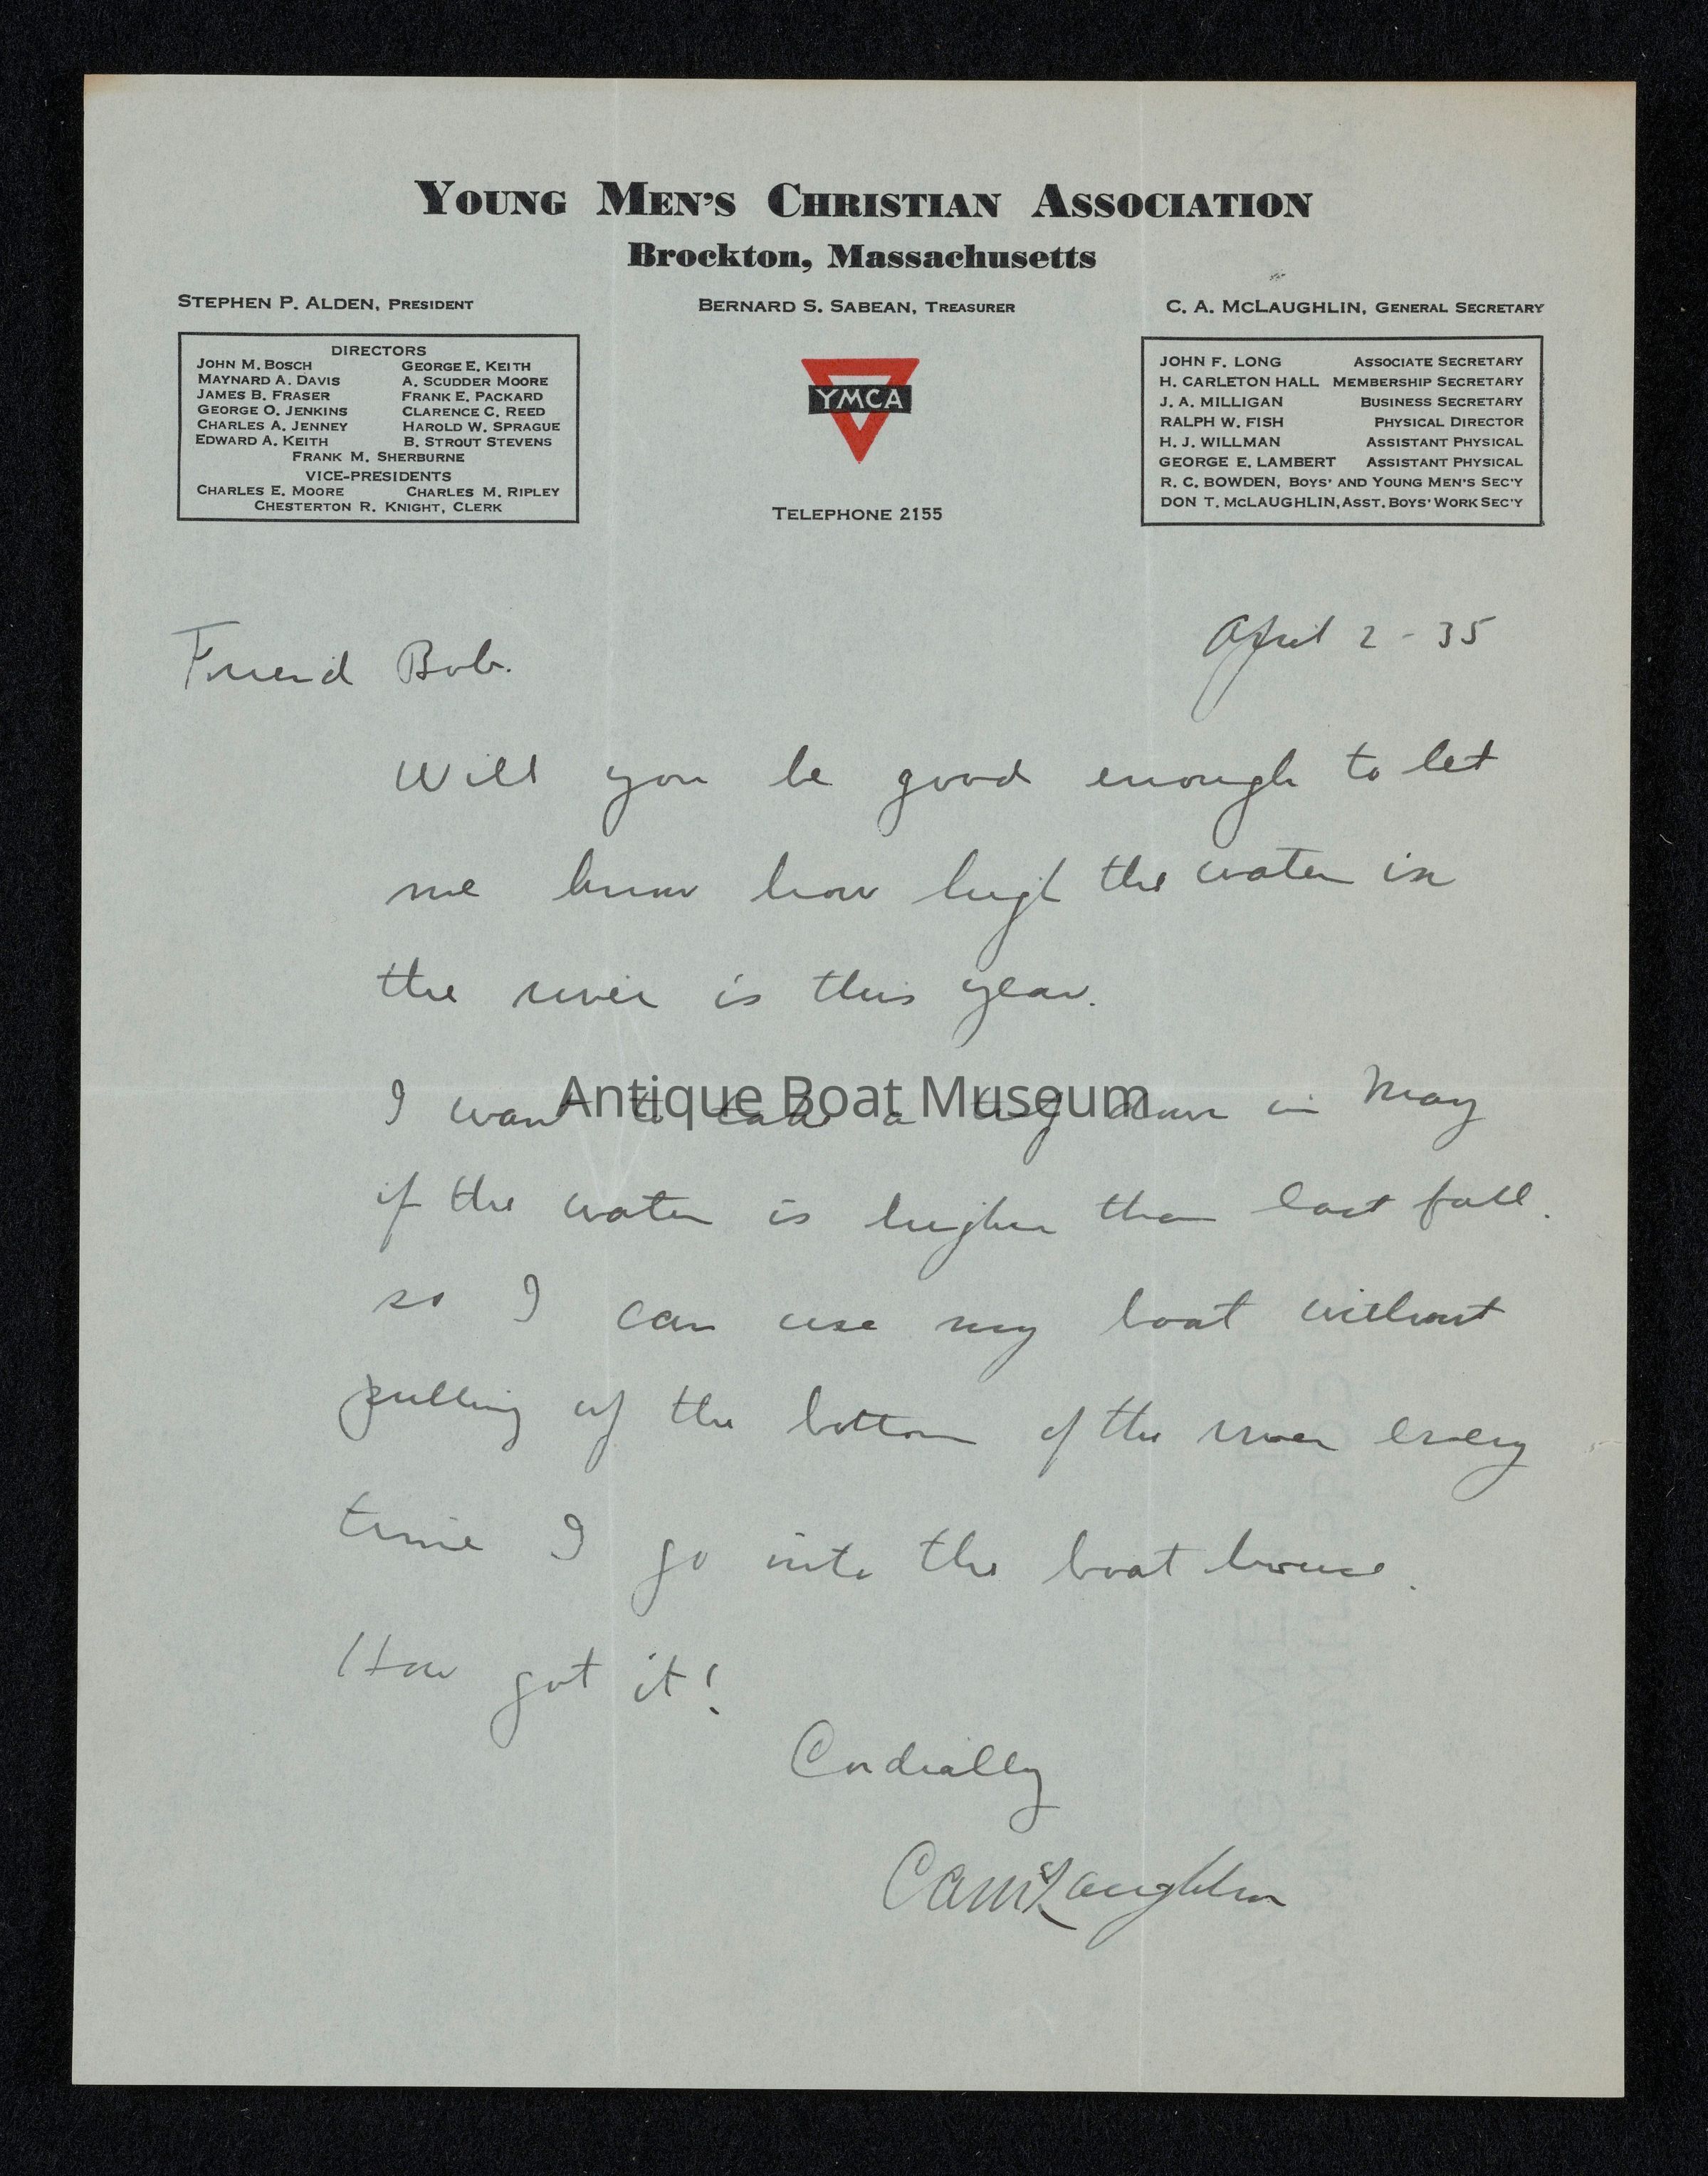 YOUNG MEN'S CHRISTIAN ASSOCIATION
Brockton, Massachusetts
STEPHEN P. ALDEN, PRESIDENT
BERNARD S. SABEAN, TREASURER
C. A. McLAUGHLIN, GENERAL SECRETARY
DIRECTORS
JOHN M. BOSCH GEORGE E. KEITH
MAYNARD A. DAVIS A. SCUDDER MOORE
JAMES B. FRASER FRANK E. PACKARD
GEORGE O. JENKINS CLARENCE C. REED
CHARLES A. JENNEY HAROLD W. SPRAGUE
EDWARD A. KEITH B. STROUT STEVENS
FRANK M. SHERBURNE
VICE-PRESIDENTS
CHARLES E. MOORE CHARLES M. RIPLEY
CHESTERTON R. KNIGHT, CLERK
YMCA
TELEPHONE 2155
JOHN F. LONG ASSOCIATE SECRETARY
H. CARLETON HALL MEMBERSHIP SECRETARY
J. A. MILLIGAN BUSINESS SECRETARY
RALPH W. FISH PHYSICAL DIRECTOR
H. J. WILLMAN ASSISTANT PHYSICAL
GEORGE E. LAMBERT ASSISTANT PHYSICAL
R. C. BOWDEN, BOYS' AND YOUNG MEN'S SEC'Y
DON T. McLAUGHLIN, ASST. BOYS' WORK SEC'Y
April 2 - 35
Friend Bob.
Will you be good enough to let
me know how high the water in
the river is this year.
I want to take a trip down in May
if the water is higher than last fall.
so I can use my boat without
pulling up the bottom of the river every
time I go into the boat house.
How got it!
Cordially
CAMcLaughlin
Antique Boat Museum